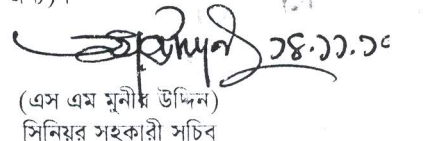 ১৪.১১.১০
(এস এম মুনীর উদ্দিন)
সিনিয়র সহকারী সচিব